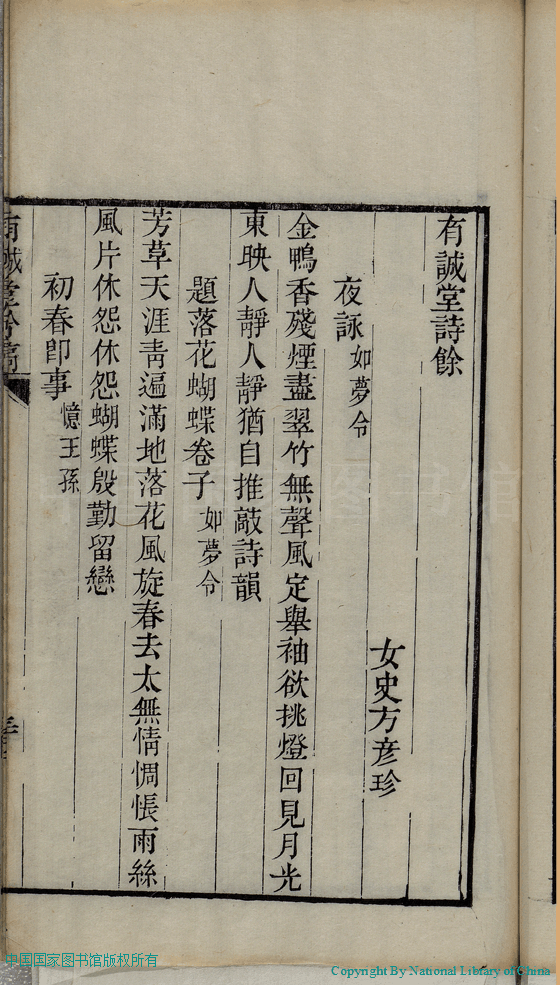 有誠堂詩餘
女史方彦珍
夜詠 如夢令
金鴨香殘煙盡翠竹無聲風定舉袖欲挑燈回見月光
東映人靜人靜猶自推敲詩韻
題落花蝴蝶卷子 如夢令
芳草天涯靑遍滿地落花風旋春去太無情惆悵雨絲
風片休怨休怨蝴蝶殷勤留戀
初春卽事 憶王孫
中国国家图书馆版权所有
Copyright By National Library of China